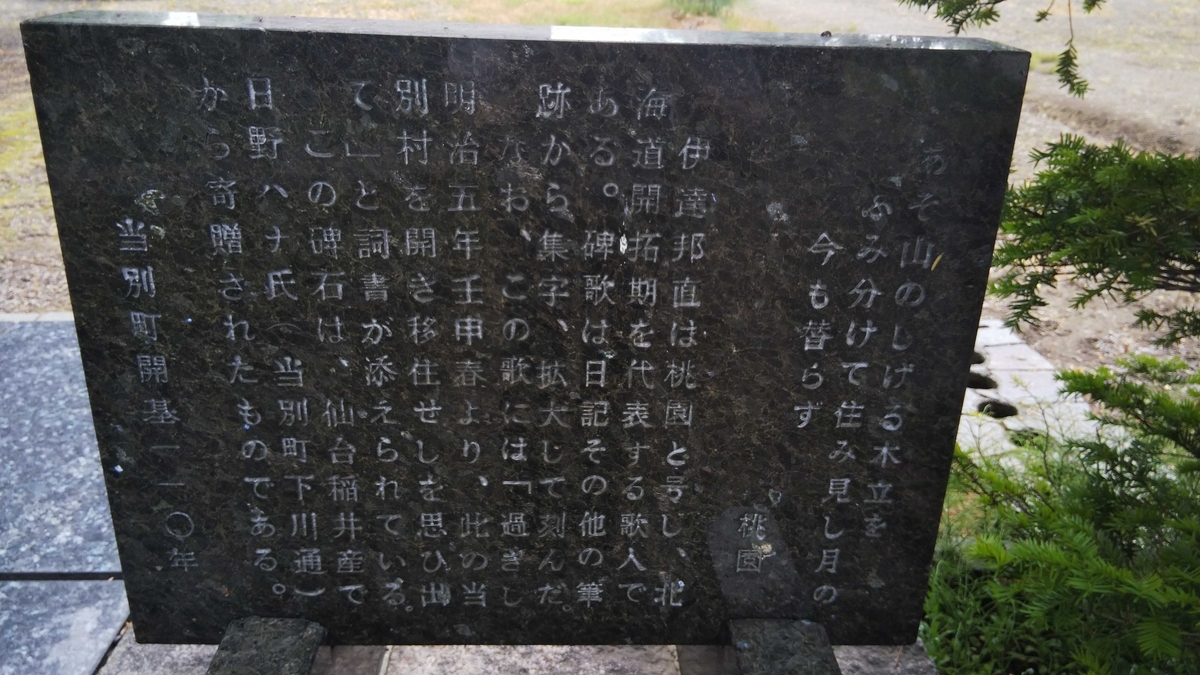 あそ山のしげる木立を
ふみ分けて住み見し月の
今も替らず
桃園
伊達邦直は桃園と号し、北
海道開拓期を代表する歌人で
ある。碑歌は日記その他の筆
跡から集字、拡大して刻んだ。
なお、この歌には「過ぎし
明治五年壬申春より、此の当
別村を開き移住せしを思ひ出
て」と詞書が添えられている。
この碑石は、仙台稲井産で
日野ハナ氏(当別町下川通)
から寄贈されたものである。
当別町開基一一〇年